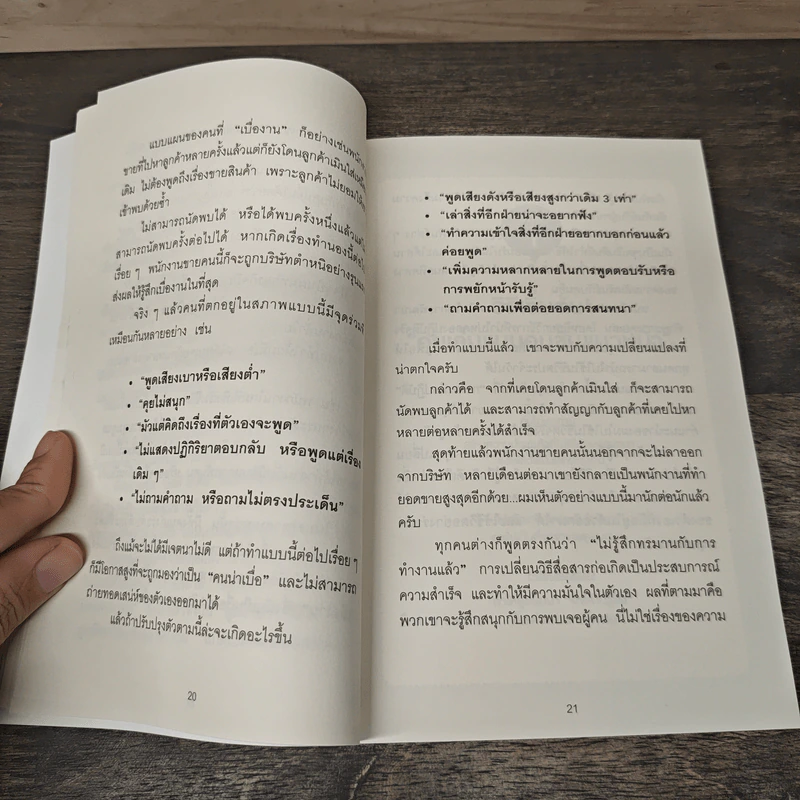 แบบแผนของคนที่ “เบื่องาน” ก็อย่างเช่นพนัก
ขายที่ไปหาลูกค้าหลายครั้งแล้วแต่ก็ยังโดนลูกค้าเมินใส่
เดิม ไม่ต้องพูดถึงเรื่องขายสินค้า เพราะลูกค้าไม่ยอมให้
เข้าพบด้วยซ้ำ
ไม่สามารถนัดพบได้ หรือได้พบครั้งหนึ่งแล้ว
สามารถนัดพบครั้งต่อไปได้ หากเกิดเรื่องทำนองนี้ต่อ
เรื่อย ๆ พนักงานขายคนนี้ก็จะถูกบริษัทตำหนิอย่างรุน
ส่งผลให้รู้สึกเบื่องานในที่สุด
จริง ๆ แล้วคนที่ตกอยู่ในสภาพแบบนี้มีจุดร่วม
เหมือนกันหลายอย่าง เช่น
• “พูดเสียงเบาหรือเสียงต่ำ”
• “คุยไม่สนุก”
• “มัวแต่คิดถึงเรื่องที่ตัวเองจะพูด”
• “ไม่แสดงปฏิกิริยาตอบกลับ หรือพูดแต่เรื่อง
เดิม ๆ”
• “ไม่ถามคำถาม หรือถามไม่ตรงประเด็น”
ถึงแม้จะไม่ได้มีเจตนาไม่ดี แต่ถ้าทำแบบนี้ต่อไปเรื่อย ๆ
ก็มีโอกาสสูงที่จะถูกมองว่าเป็น “คนน่าเบื่อ” และไม่สามารถ
ถ่ายทอดเสน่ห์ของตัวเองออกมาได้
แล้วถ้าปรับปรุงตัวตามนี้ล่ะจะเกิดอะไรขึ้น
20
• “พูดเสียงดังหรือเสียงสูงกว่าเดิม 3 เท่า”
• “เล่าสิ่งที่อีกฝ่ายน่าจะอยากฟัง”
• “ทำความเข้าใจสิ่งที่อีกฝ่ายอยากบอกก่อนแล้ว
ค่อยพูด”
• “เพิ่มความหลากหลายในการพูดตอบรับหรือ
การพยักหน้ารับรู้”
• “ถามคำถามเพื่อต่อยอดการสนทนา”
เมื่อทำแบบนี้แล้ว เขาจะพบกับความเปลี่ยนแปลงที่
น่าตกใจครับ
กล่าวคือ จากที่เคยโดนลูกค้าเมินใส่ ก็จะสามารถ
นัดพบลูกค้าได้ และสามารถทำสัญญากับลูกค้าที่เคยไปหา
หลายต่อหลายครั้งได้สำเร็จ
สุดท้ายแล้วพนักงานขายคนนั้นนอกจากจะไม่ลาออก
จากบริษัท หลายเดือนต่อมาเขายังกลายเป็นพนักงานที่ทำ
ยอดขายสูงสุดอีกด้วย...ผมเห็นตัวอย่างแบบนี้มานักต่อนักแล้ว
ครับ
ทุกคนต่างก็พูดตรงกันว่า “ไม่รู้สึกทรมานกับการ
ทำงานแล้ว” การเปลี่ยนวิธีสื่อสารก่อเกิดเป็นประสบการณ์
ความสำเร็จ และทำให้มีความมั่นใจในตัวเอง ผลที่ตามมาคือ
พวกเขาจะรู้สึกสนุกกับการพบเจอผู้คน นี่ไม่ใช่เรื่องของความ
21